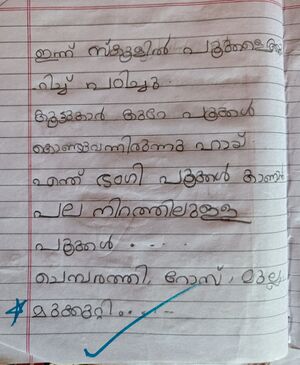 ഇന്ന് സ്കൂളിൽ പൂക്കളെക്കു
റിച്ച് പഠിച്ചു.
കൂട്ടുകാർ കുറേ പൂക്കൾ
കൊണ്ടുവന്നിരുന്നു ഹായ്
എന്ത് ഭംഗി പൂക്കൾ കാണാൻ
പല നിറത്തിലുള്ള
പൂക്കൾ . . . .
ചെമ്പരത്തി, റോസ്, മുല്ല,
മുക്കുറ്റി . . . .